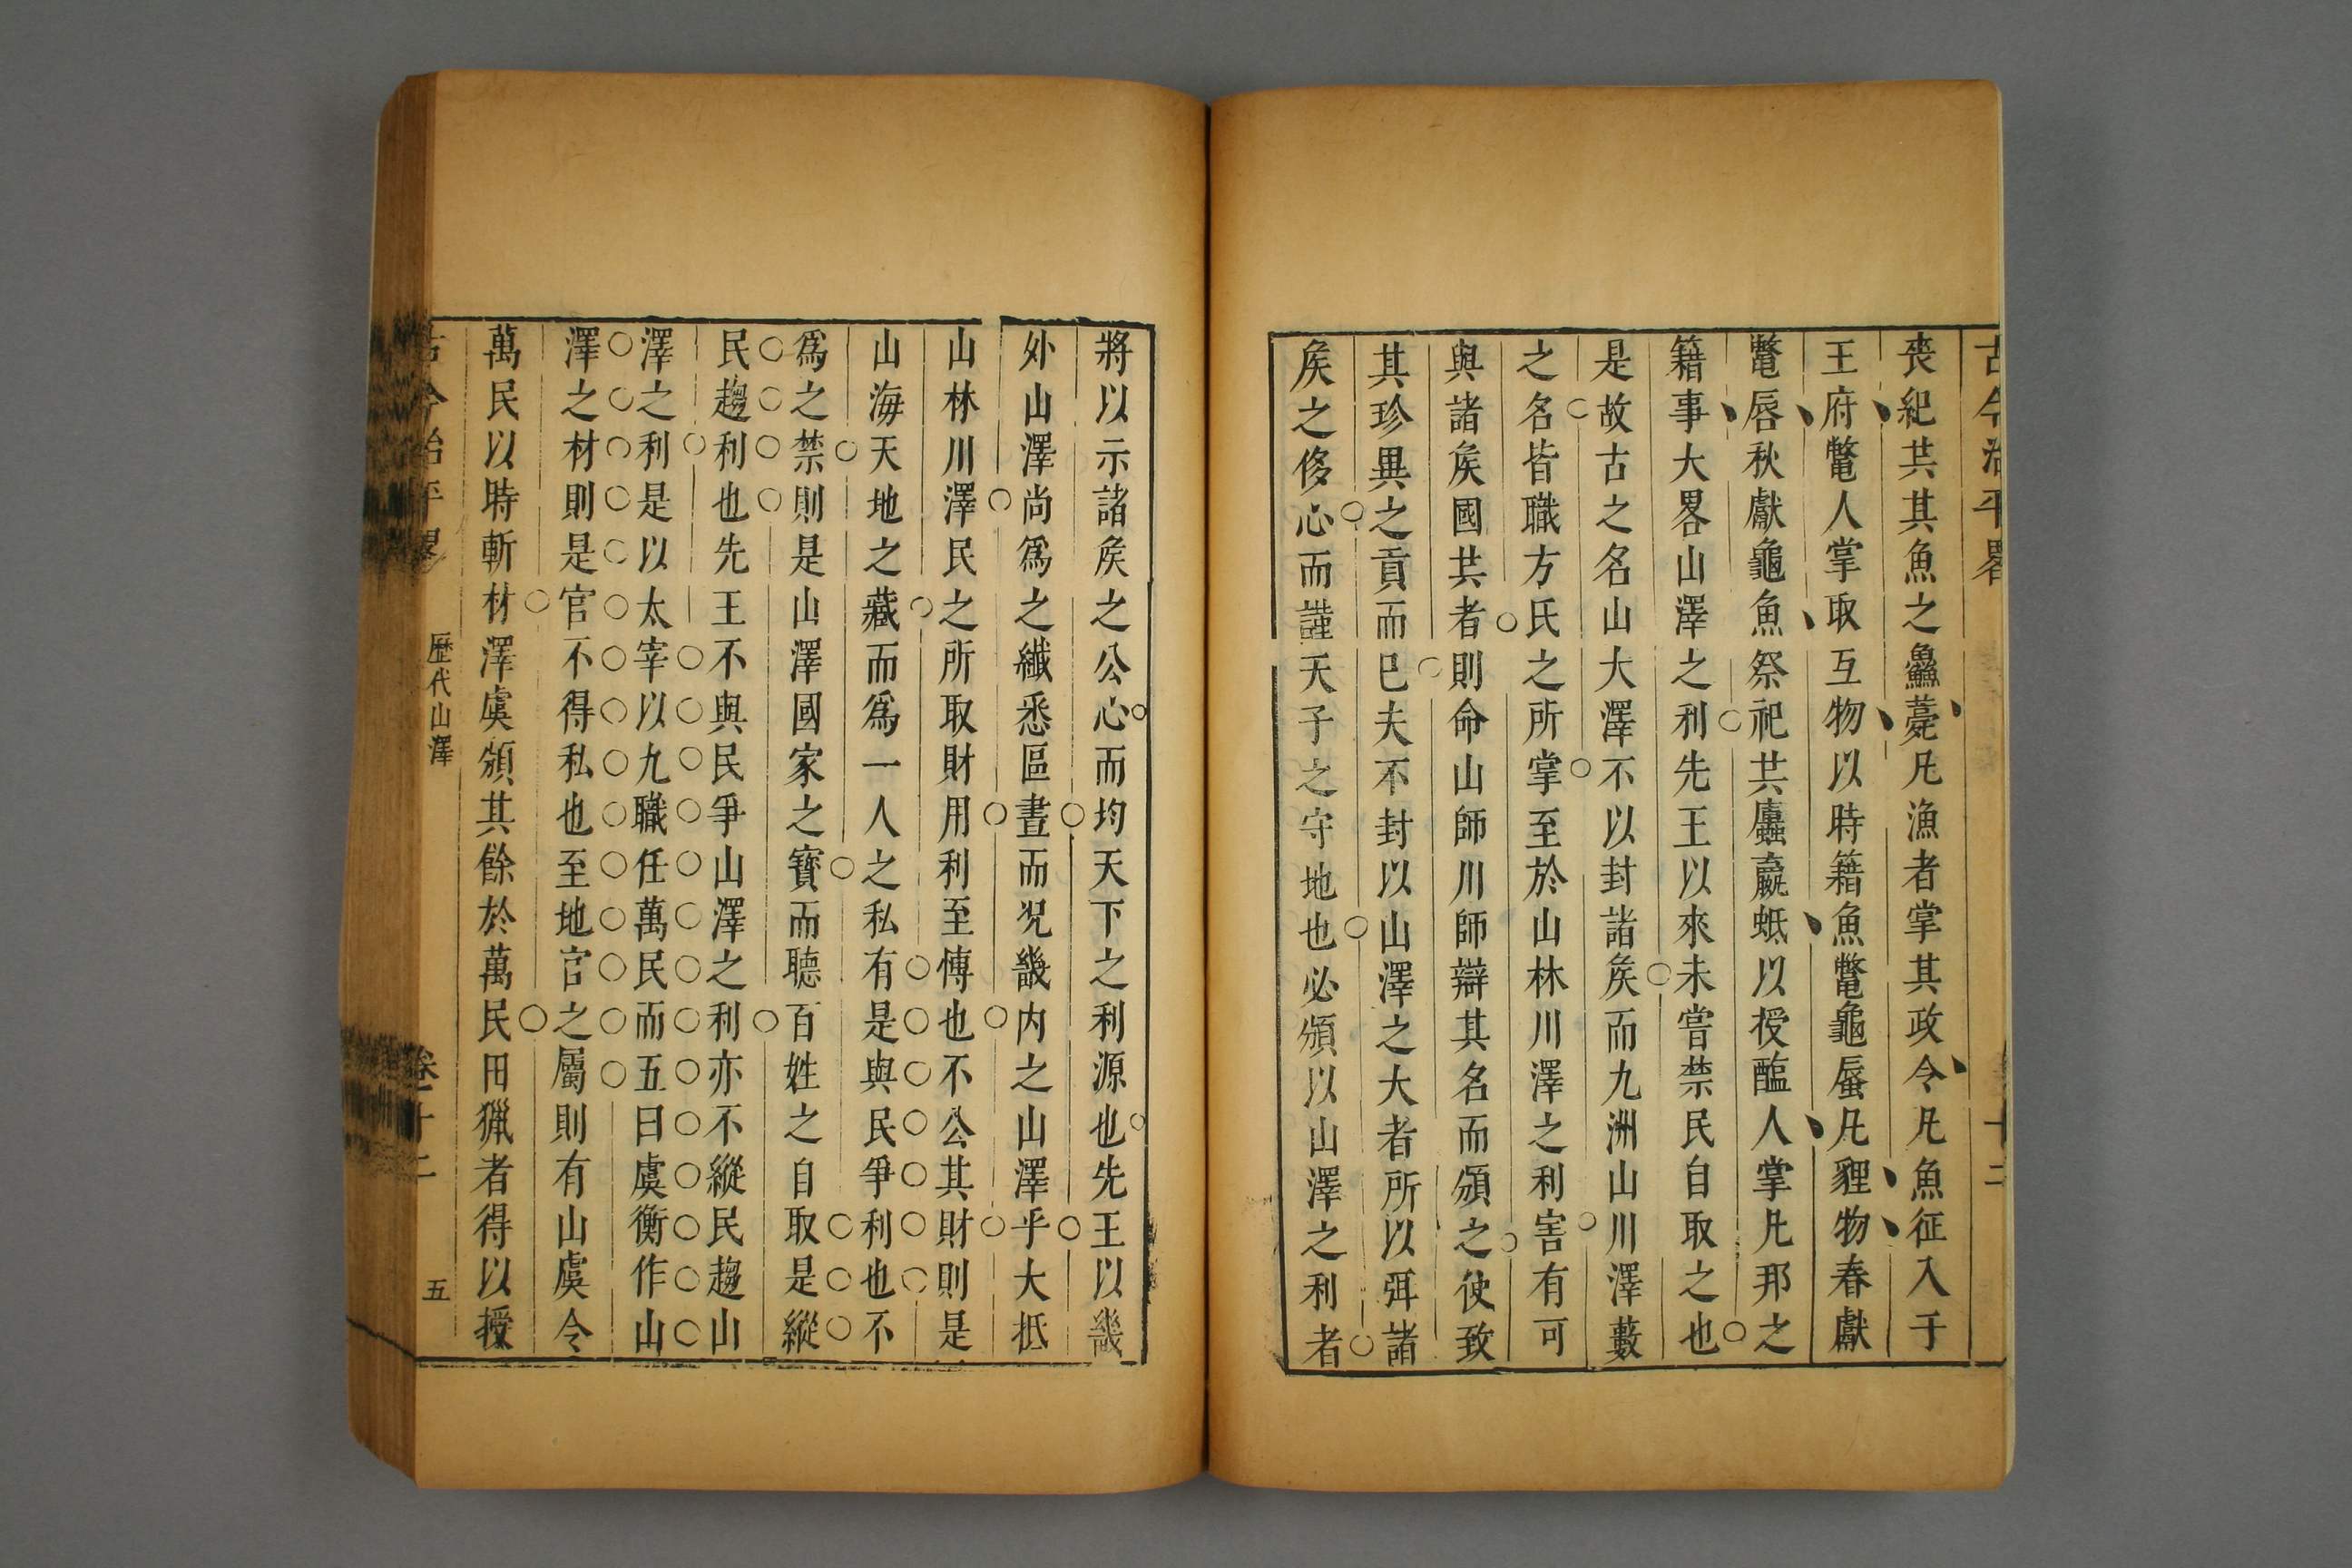 古今治平畧
十二
喪紀共其魚之鱻薧凡漁者掌其政令凡魚征入于
王府鼈人掌取互物以時籍魚鼈龜蜃凡貍物春獻
鼈蜃秋獻龜魚祭祀共蠯蠃蚳以授醢人掌凡邦之
籍事大畧山澤之利先王以來未嘗禁民自取之也
是故古之名山大澤不以封諸矦而九洲山川澤藪
之名皆職方氏之所掌至於山林川澤之利害有可
與諸矦國共者則命山師川師辯其名而頒之使致
其珍異之貢而已夫不封以山澤之大者所以弭諸
矦之侈心而謹天子之守地也必頒以山澤之利者
將以示諸矦之公心而均天下之利源也先王以畿
外山澤尚爲之纖悉區畫而况畿内之山澤乎大抵
山林川澤民之所取財用利至愽也不公其財則是
山海天地之藏而爲一人之私有是與民爭利也不
爲之禁則是山澤國家之寶而聽百姓之自取是縱
民趨利也先王不與民爭山澤之利亦不縱民趨山
澤之利是以太宰以九職任萬民而五曰虞衡作山
澤之材則是官不得私也至地官之屬則有山虞令
萬民以時斬材澤虞頒其餘於萬民田獵者得以授
古今治平畧
歷代山澤
卷十二
五